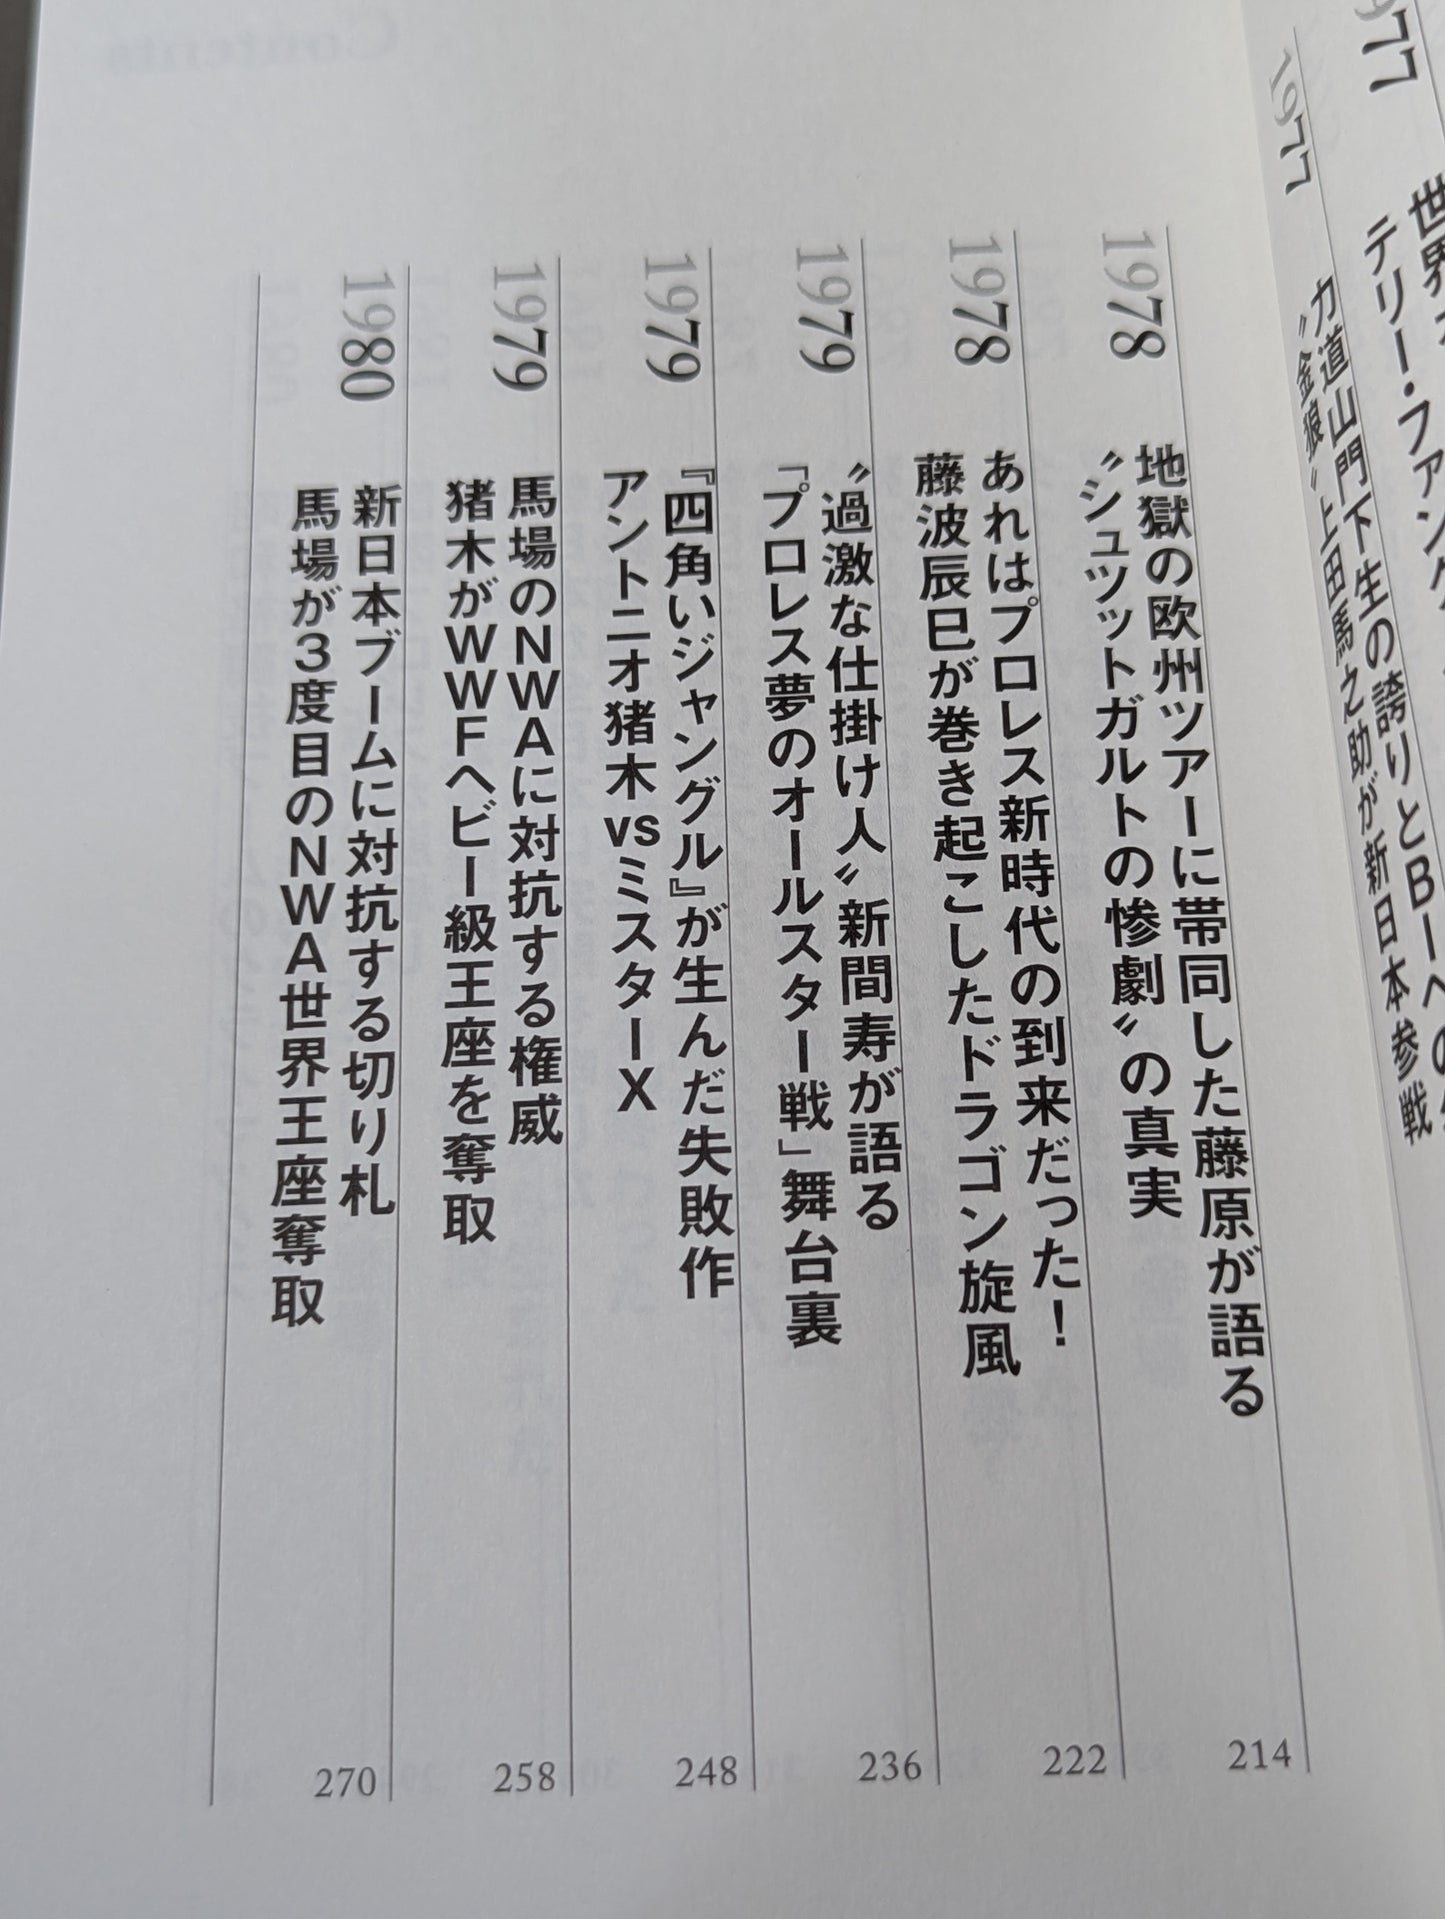 世界
テリー・ファンク
1977
力道山門下生の誇りとBIへの
〝金狼〟上田馬之助が新日本参戦
1978
地獄の欧州ツアーに帯同した藤原が語る
〝シュツットガルトの惨劇〟の真実
214
1978
あれはプロレス新時代の到来だった！
藤波辰巳が巻き起こしたドラゴン旋風
222
1979
〝過激な仕掛け人〟新間寿が語る
「プロレス夢のオールスター戦」舞台裏
236
1979
『四角いジャングル』が生んだ失敗作
アントニオ猪木vsミスターX
248
1979
馬場のNWAに対抗する権威
猪木がWWFヘビー級王座を奪取
258
1980
新日本ブームに対抗する切り札
馬場が3度目のNWA世界王座奪取
270